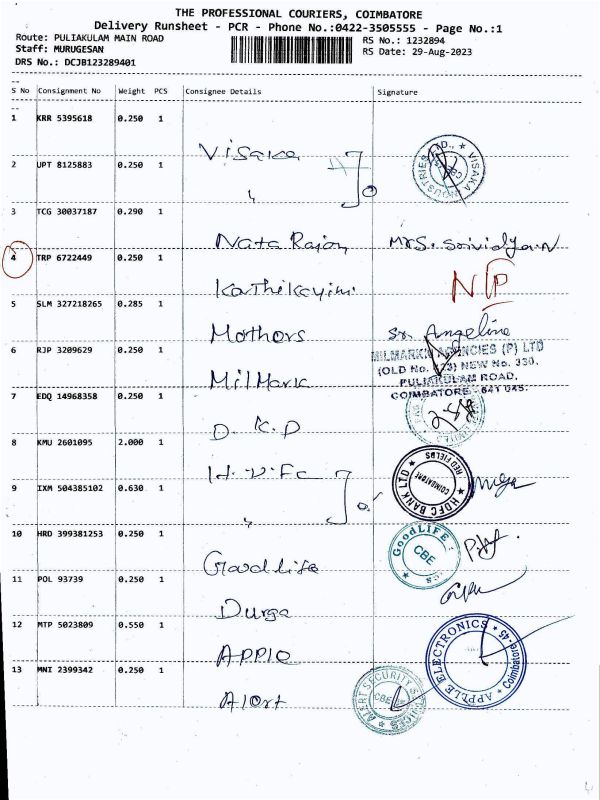 THE PROFESSIONAL COURIERS, COIMBATORE
Delivery Runsheet - PCR - Phone No.:0422-3505555 - Page No.:1
Route: PULIAKULAM MAIN ROAD RS No.: 1232894
Staff: MURUGESAN RS Date: 29-Aug-2023
DRS No.: DCJB123289401
S No Consignment No Weight PCS Consignee Details Signature
1 KRR 5395618 0.250 1
Visaka VISAKA INDUSTRIES LTD., CBE
2 UPT 8125883 0.250 1
"
3 TCG 30037187 0.290 1
Nata Rajan Mrs. Srividya.N
4 TRP 6722449 0.250 1
Kathikayini N/P
5 SLM 327218265 0.285 1
Mothers Sr. Angeline
6 RJP 3209629 0.250 1
MilMark MILMARK AGENCIES (P) LTD
(OLD No. 173) NEW No. 330,
PULIAKULAM ROAD,
COIMBATORE - 641 045.
7 EDQ 14968358 0.250 1
D.K.D
8 KMU 2601095 2.000 1
H.D.Fc HDFC BANK LTD RED FIELDS COIMBATORE
9 IXM 504385102 0.630 1
"
10 HRD 399381253 0.250 1
Goodlife GoodLIFE CBE
11 POL 93739 0.250 1
Durga
12 MTP 5023809 0.550 1
APPlO APPLE ELECTRONICS Coimbatore-45
13 MNI 2399342 0.250 1
Alort ALERT SECURITY SERVICES CBE